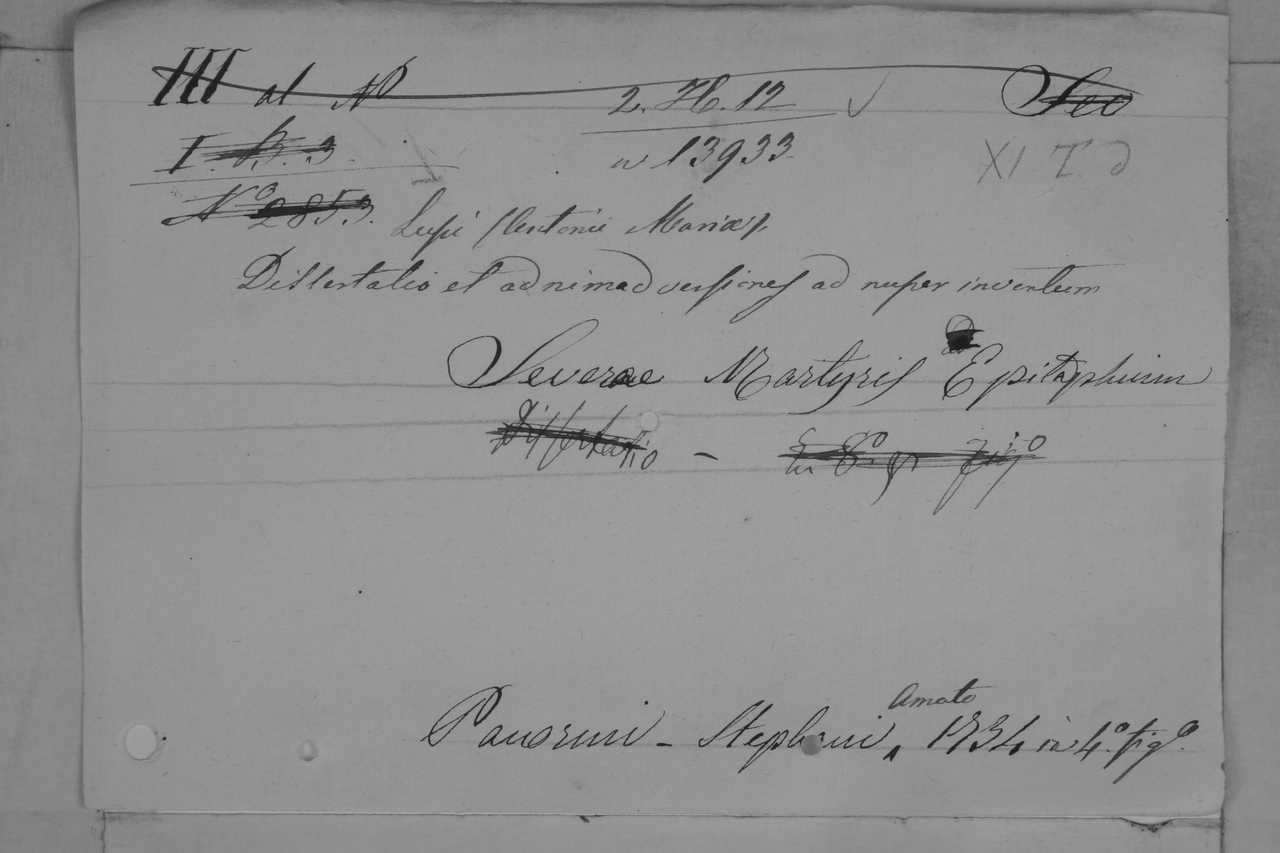 III al N° 2. H. 12 Leo
I. B. 3 n 13933 XI T. d
N° 2853. Lupi (Antonii Mariæ)
Dissertatio et adnimadversiones ad nuper inventum
Severae Martyris Epitaphium
Dissertatio – fig°
Panormi – Stephani Amato 1734 in 4° fig°.